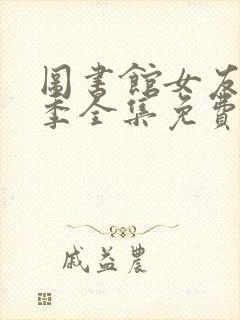 圖書館女友
季全集免費
戚益農